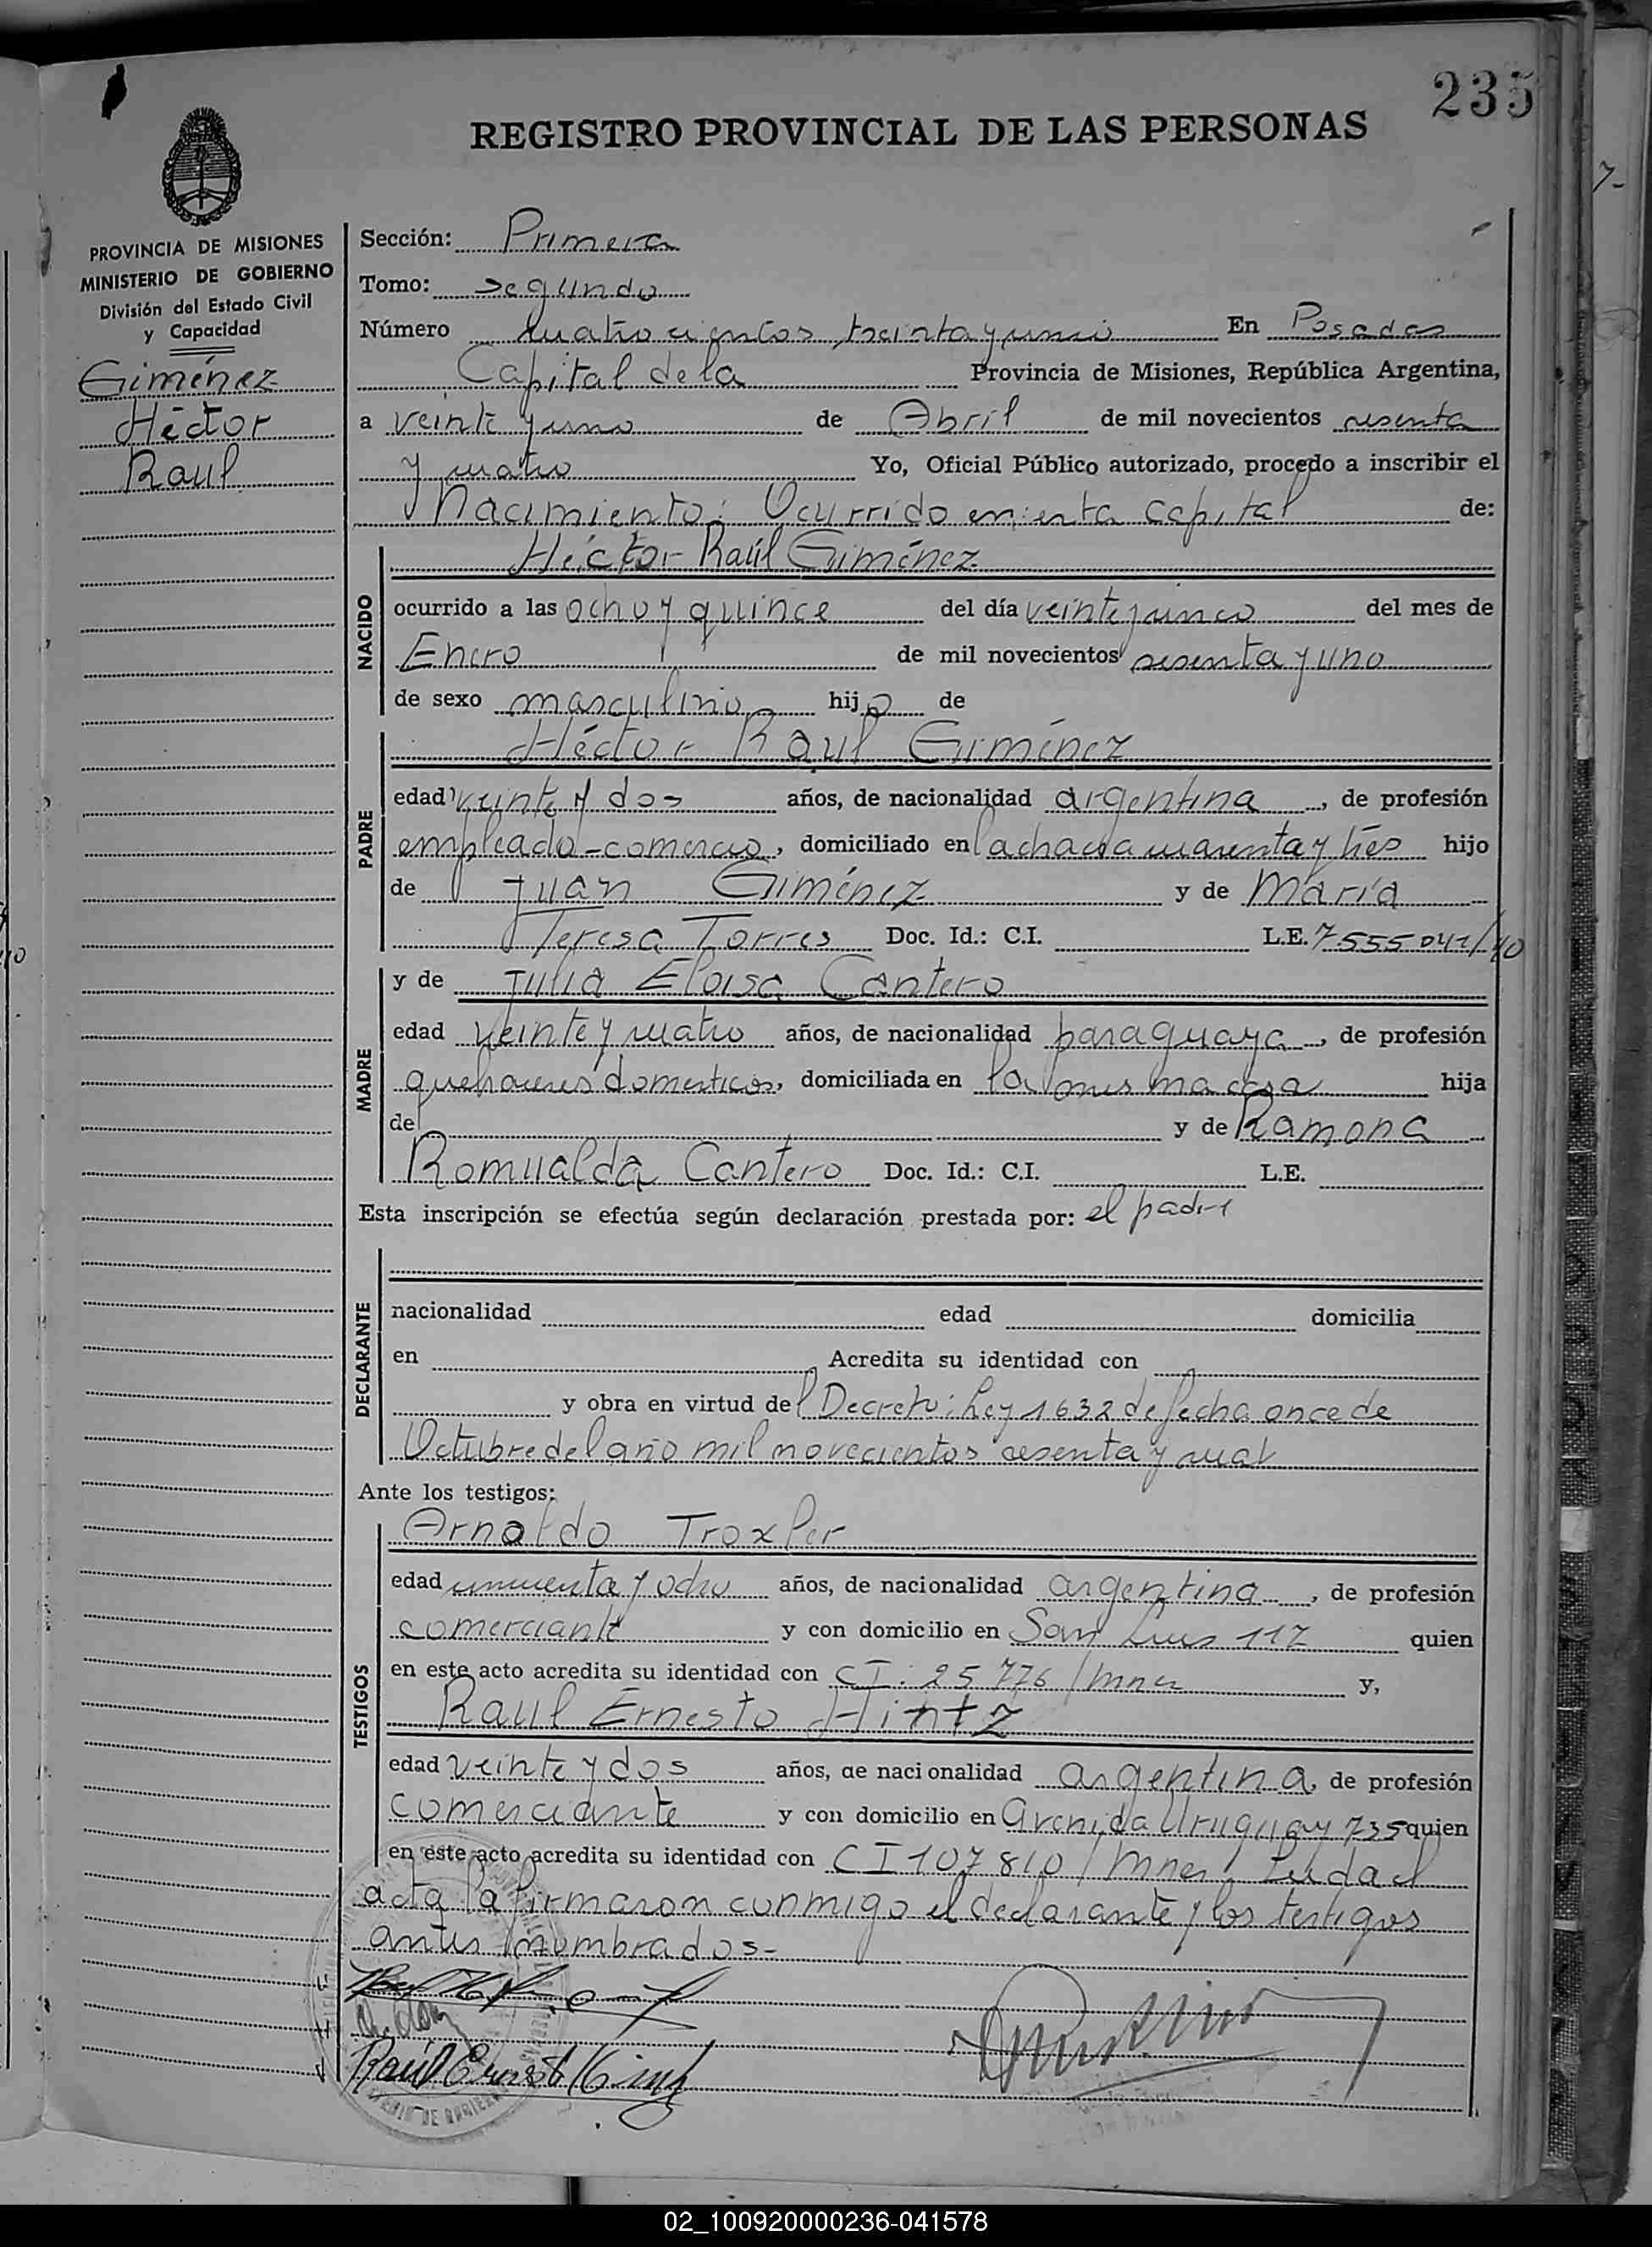 235
REGISTRO PROVINCIAL DE LAS PERSONAS
PROVINCIA DE MISIONES
MINISTERIO DE GOBIERNO
División del Estado Civil
y Capacidad
Giménez
Héctor
Raul
Sección: Primera
Tomo: segundo
Número cuatrocientos treinta y uno En Posadas
Capital de la Provincia de Misiones, República Argentina,
a veinte y uno de Abril de mil novecientos sesenta
y cuatro Yo, Oficial Público autorizado, procedo a inscribir el
Nacimiento: Ocurrido en esta capital de:
NACIDO
Héctor Raúl Giménez
ocurrido a las ocho y quince del día veinte y cinco del mes de
Enero de mil novecientos sesenta y uno
de sexo masculino hijo de
PADRE
Héctor Raúl Giménez
edad veinte y dos años, de nacionalidad argentina, de profesión
empleado-comercio, domiciliado en la chacra cuarenta y tres hijo
de Juan Giménez y de María
Teresa Torres Doc. Id.: C.I. L.E. 7555041/40
MADRE
y de Julia Eloisa Cantero
edad veinte y cuatro años, de nacionalidad paraguaya, de profesión
quehaceres domesticos, domiciliada en la misma casa hija
de y de Ramona
Romualda Cantero Doc. Id.: C.I. L.E.
Esta inscripción se efectúa según declaración prestada por: el padre
DECLARANTE
nacionalidad edad domicilia
en Acredita su identidad con
y obra en virtud del Decreto: Ley 1632 de fecha once de
Octubre del año mil novecientos sesenta y cuat
Ante los testigos:
TESTIGOS
Arnoldo Troxler
edad cincuenta y ocho años, de nacionalidad argentina, de profesión
comerciante y con domicilio en San Luis 117 quien
en este acto acredita su identidad con CI. 25776/Mnes y,
Raul Ernesto Hintz
edad veinte y dos años, de nacionalidad argentina, de profesión
comerciante y con domicilio en Avenida Uruguay 735 quien
en este acto acredita su identidad con CI 107810/Mnes Leida el
acta la firmaron conmigo el declarante y los testigos
antes nombrados.-
Raúl Ernesto Hintz
02_100920000236-041578